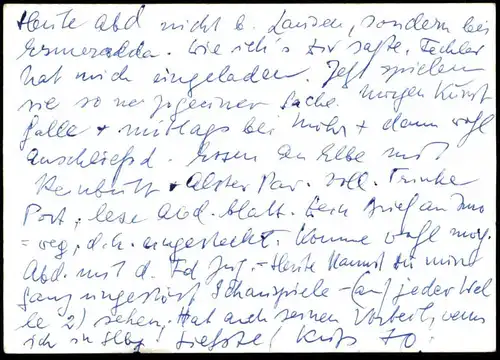 Heute Abd nicht b. Lansen, sondern bei
Esmeralda. Wie ich's Dir sagte. Fechler
hat mich eingeladen. Jetzt spielen
sie so ne Zigeuner Sache. Morgen Kunst
halle + mittags bei Mohr + dann wohl
anschließd. Essen an Elbe mit
+ Alster Pav. voll. Trinke
Port, lese Abd.blatt. Dein Brief an
= weg, d.h. eingesteckt. Komme wohl morg.
Abd. mit d. Zug. - Heute kannst Du mine
ganz ungestört Schauspiele - (auf jeder Wel
le 2) sehen. Hat auch seinen Vorteil, wenn
ich in Hbg! Liebster Kuß